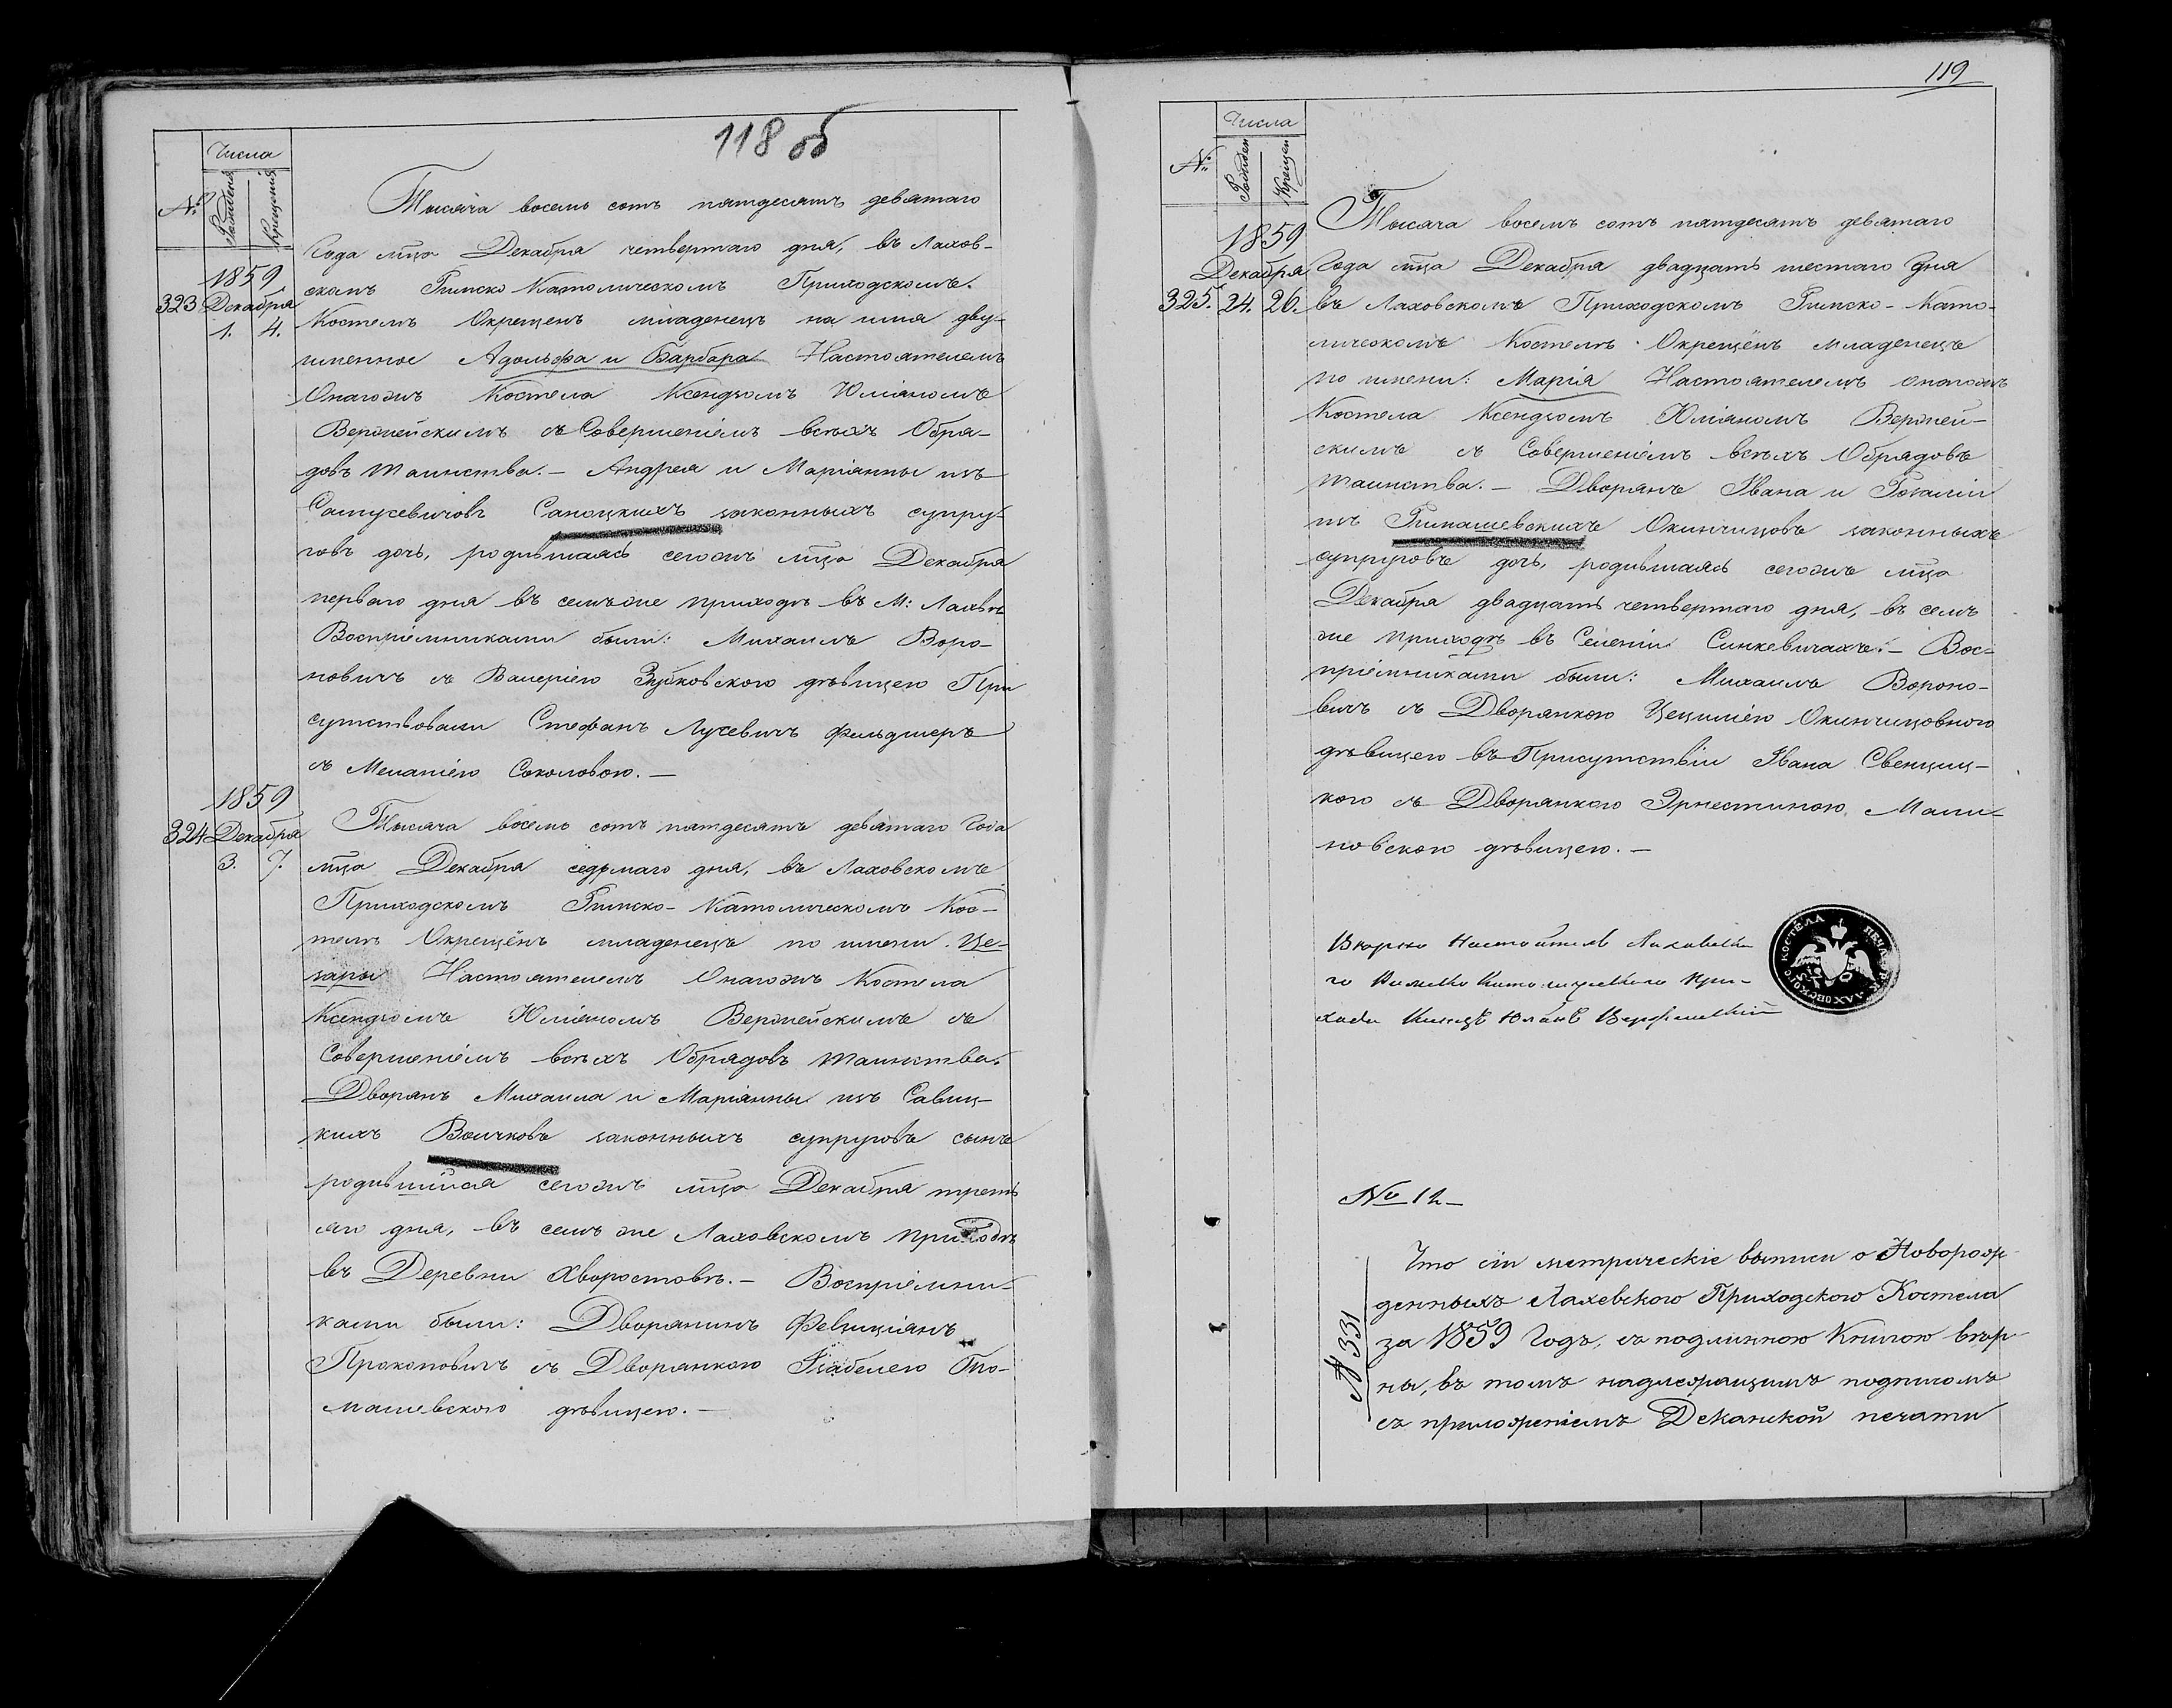 118 об
№
Числа
Рожденія
Крещенія
1859
323 Декабря
1. 4.
Тысяча восемь сотъ пятдесятъ девятаго
Года мца Декабря четвертаго дня, въ Лахов-
скомъ Римско Католическомъ Приходскомъ
Костелѣ Окрещенъ младенецъ на имя дву-
именное Адольфа и Барбара Настоятелемъ
Онагожъ Костела Ксендзомъ Юліаномъ
Вержейскимъ съ Совершеніемъ всѣхъ Обря-
довъ таинства. — Андрея и Маріанны изъ
Самусевичовъ Саноцкихъ законныхъ супру-
говъ дочь, родившаясь сегожъ мца Декабря
перваго дня въ семъ же приходѣ въ М: Лахвѣ
Воспріемниками были: Михаилъ Воро-
новичъ съ Валеріею Зубковскою дѣвицею При
сутствовали Стефанъ Лусевичъ фельдшеръ
съ Меланіею Соколовою. —
1859
324 Декабря
3. 7.
Тысяча восемь сотъ пятдесятъ девятаго Года
мца Декабря седьмаго дня, въ Лаховскомъ
Приходскомъ Римско-Католическомъ Кос-
телѣ Окрещёнъ младенецъ по имени Це-
зары Настоятелемъ Онагожъ Костела
Ксендзомъ Юліаномъ Вержейскимъ съ
Совершеніемъ всѣхъ Обрядовъ таинства.
Дворянъ Михаила и Маріанны изъ Савиц-
кихъ Воичковъ законныхъ супруговъ сынъ
родившійся сегожъ мца Декабря треть
яго дня, въ семъ же Лаховскомъ приходѣ
въ Деревни Хворостовѣ. — Воспріемни-
ками были: Дворянинъ Фелиціанъ
Прокоповичъ съ Дворянкою Изабелею То-
машевскою дѣвицею. —
119
№
Числа
Рожден
Крещен
1859
Декабря
325. 24. 26.
Тысяча восемъ сотъ пятдесятъ девятаго
Года мца Декабря двадцать шестаго дня
въ Лаховскомъ Приходскомъ Римско-Като-
лическомъ Костелѣ Окрещёнъ младенецъ
по имени: Марія Настоятелемъ онагожъ
Костела Ксендзомъ Юліаномъ Вержей-
скимъ съ Совершеніемъ всѣхъ Обрядовъ
таинства. — Дворянъ Івана и Розаліи
изъ Римашевскихъ Окинчицовъ законныхъ
супруговъ дочь, родившаясь сегожъ мца
Декабря двадцать четвертаго дня, въ семъ
же приходѣ въ Селеніи Синкевичахъ. — Вос-
пріемниками были: Михаилъ Вороно-
вичъ съ Дворянкою Цециліею Окинчицовною
дѣвицею въ Присутствіи Івана Свенциц-
кого съ Дворянкою Эрнестиною Мали-
новскою дѣвицею. —
Вѣрно Настоятель Лаховска
го Римско Католическаго При-
хода Ксендзъ Юліанъ Вержейскій
ПЕЧАТЬ ЛАХОВСКОГО КОСТЕЛА
№ 12
№ 331
Что сіи метрическіе выписи о Новорож-
денныхъ Лахевского Приходского Костела
за 1859 Годъ, съ подлинною Книгою вѣр-
ны, въ томъ надлежащимъ подписомъ
съ приложеніемъ Деканской печати